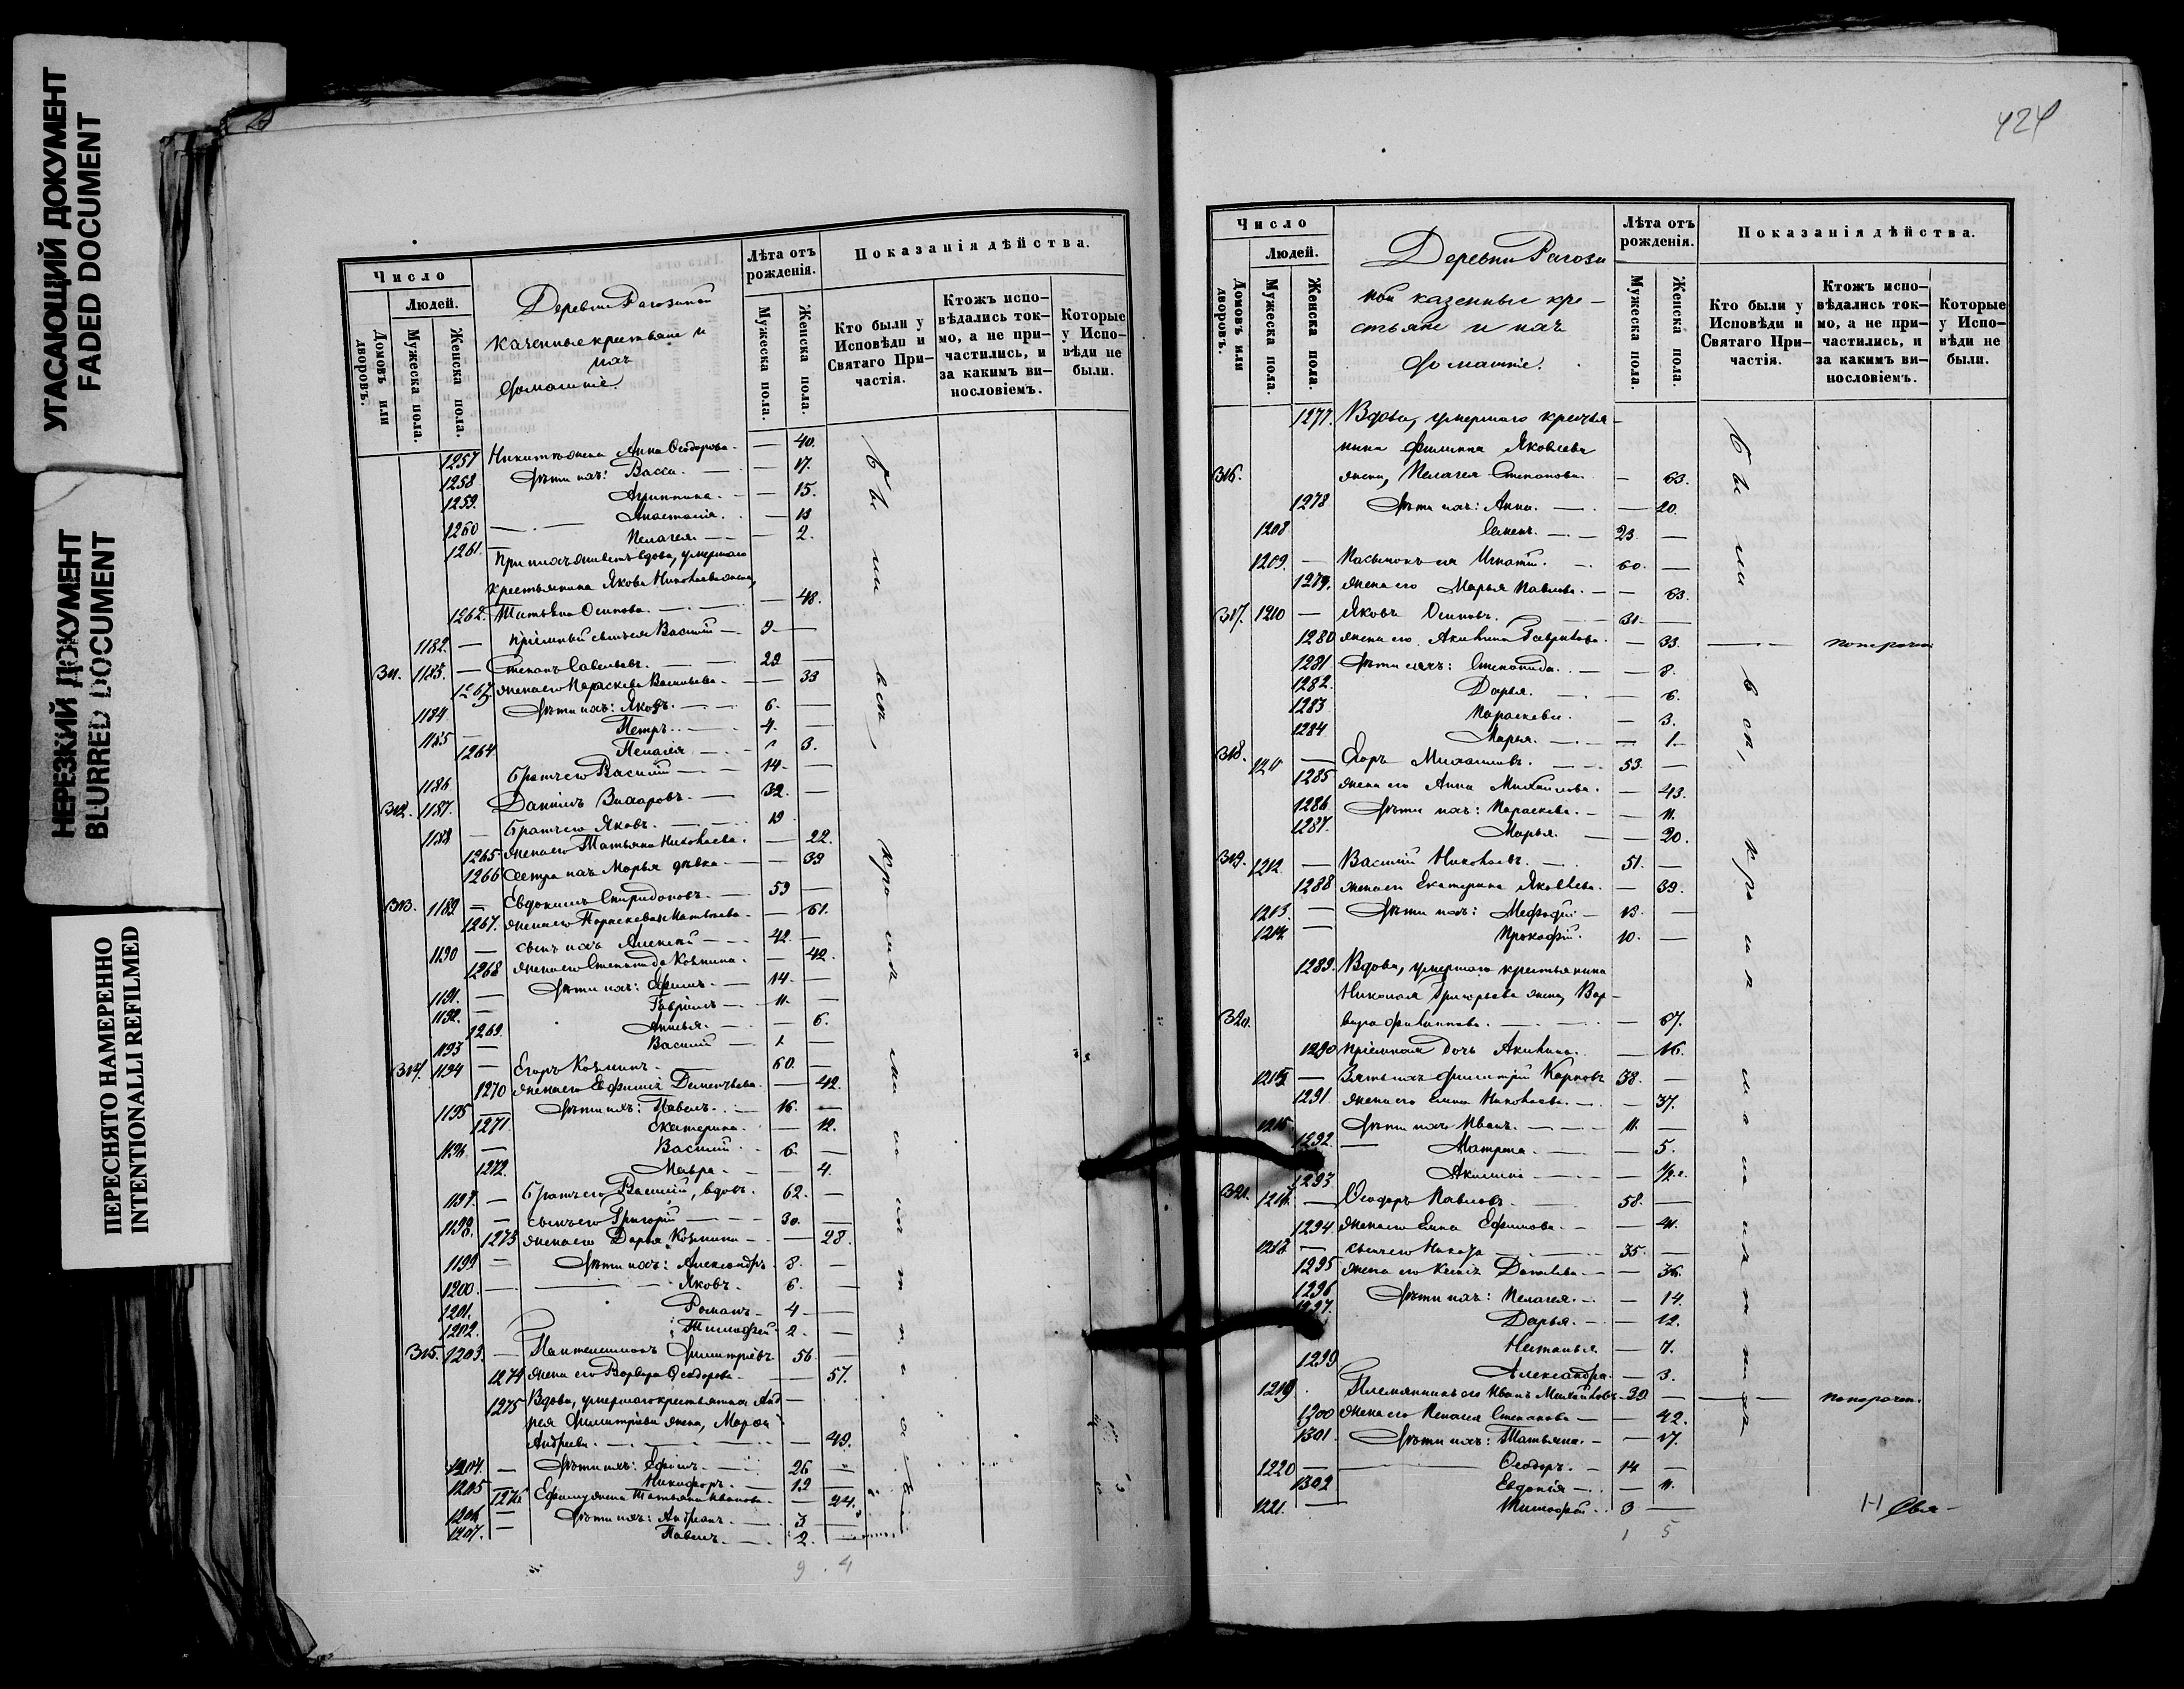 УГАСАЮЩИЙ ДОКУМЕНТ
FADED DOCUMENT
НЕРЕЗКИЙ ДОКУМЕНТ
BLURRED DOCUMENT
ПЕРЕСНЯТО НАМЕРЕННО
INTENTIONALLI REFILMED
Число
Людей.
Домовъ или дворовъ.
Мужеска пола.
Женска пола.
Деревни Рагозиной
казенные крестьяне и
ихъ
домашніе.
Лѣта отъ рожденія.
Мужеска пола.
Женска пола.
Показанія дѣйства.
Кто были у Исповѣди и Святаго При-частія.
Ктожъ испо-вѣдались ток-мо, а не при-частились, и за какимъ ви-нословіемъ.
Которые у Испо-вѣди не были.
1257 Никиты жена Анна Ѳеодорова. — 40.
1258 Дѣти ихъ: Васса. — 17.
1259. Агриппина. — 15.
1260 Анастасія. — 13
1261. Пелагея — 2.
При нихъ живетъ вдова, умершаго
крестьянина Якова Николаева жена,
1262. Татьяна Осипова. — 48.
1182. — пріемный сынъ ея Василій — 9 —
311. 1183. — Степанъ Савельевъ. — 29 —
1263 жена его Параскева Васильева. — 33
1184 Дѣти ихъ: Яковъ. — 6. —
1185 — Петръ. — 4. —
1264 Пелагея — 3.
1186 Братъ его Василій — 14 —
312. 1187. Даніилъ Захаровъ. — 32. —
1188 — Братъ его Яковъ. — 19
1265 жена его Татьяна Николаева. — 22.
1266 Сестра ихъ Марья дѣвка — 39
313. 1189 — Евдокимъ Спиридоновъ. — 59 —
1267. жена его Параскева Матвѣева. — 61.
1190 — сынъ ихъ Алексѣй — 42. —
1268 жена его Степанида Козмина. — 42.
1191. — Дѣти ихъ: Ефимъ. — 14. —
1192. — Гавріилъ — 11. —
1269. Анисья. — 6.
1193 — Василій — 1 —
314. 1194 — Егоръ Козминъ. — 60. —
1270 жена его Евфимія Дементьева. — 42.
1195 — Дѣти ихъ: Павелъ. — 16. —
1271 Екатерина. — 12.
1196. — Василій. 6. —
1272. Мавра. — 4.
1197. — Братъ его Василій, вдовъ. 62. —
1198. — сынъ его Григорій — 30. —
1273 жена его Дарья Козмина — 28.
1199 — Дѣти ихъ: Александръ. 8. —
1200 — Яковъ. 6. —
1201. Романъ. 4 —
1202. Тимофей. 2. —
315. 1203. — Пантелеимонъ Димитріевъ. 56 —
1274 жена его Варвара Ѳеодорова. — 57.
1275 Вдова, умершаго крестьянина Анд —
рея Димитріева жена, Марѳа
Андреева. — 49.
1204 — Дѣти ихъ: Ефимъ. — 26 —
1205 — Никифоръ. — 12 —
1276 Ефима жена Татьяна Иванова. — 24.
1206 — Дѣти ихъ: Андрианъ. — 3 —
1207. — Павелъ. — 2. —
были
вси
кромѣ
9 . 4
424
Число
Людей.
Домовъ или дворовъ.
Мужеска пола.
Женска пола.
Деревни Рагози
ной казенные кре —
стьяне и ихъ
домашніе.
Лѣта отъ рожденія.
Мужеска пола.
Женска пола.
Показанія дѣйства.
Кто были у Исповѣди и Святаго При-частія.
Ктожъ испо-вѣдались ток-мо, а не при-частились, и за какимъ ви-нословіемъ.
Которые у Испо-вѣди не были.
1277. Вдова, умершаго крестья —
нина Филиппа Яковлева
316. жена, Пелагея Степанова. — 63.
1278 Дѣти ихъ: Анна. — 20.
1208 Семенъ. — 23. —
1209. — Пасынокъ ея Игнатій. — 60. —
1279. жена его Марья Павлова. — 63.
317. 1210 — Яковъ Осиповъ. — 31. —
1280 жена его Акилина Гаврилова. — 33. —
1281 Дѣти ихъ: Степанида. — 8.
1282. Дарья. — 6.
1283 Параскева. — 3.
1284 Марья. — 1.
318. 1211 — Егоръ Михайловъ. — 53. —
1285 жена его Анна Михайлова. — 43.
1286 Дѣти ихъ: Параскева. — 11.
1287. Марья. — 20.
319. 1212. — Василій Николаевъ. — 51. —
1288 жена его Екатерина Яковлева. — 39.
1213. — Дѣти ихъ: Мефодій — 13. —
1214 — Прокофій. 10. —
1289. Вдова, умершаго крестьянина
Николая Григорьева жена, Вар —
320. вара Филиппова. — 67.
1290 пріемная дочь Акилина. — 16.
1215 — Зять ихъ Димитрій Карповъ 38. —
1291 жена его Елена Николаева. — 37.
1216. Дѣти ихъ Иванъ. — 11. —
1292. — Матрена. — 5.
1293. Акилина — 1/2 г.
321. 1217. — Ѳеодоръ Павловъ. — 58. —
1294. жена его Елена Ефимова. — 41.
1218 — сынъ его — 35. —
1295 жена его Ксенія Данилова — 36.
1296 Дѣти ихъ: Пелагея. — 14.
1297. Дарья. — 12.
Наталья — 7.
1299 Александра. — 3.
1219. Племянникъ его Иванъ Михайловъ. 39 —
1300 жена его Пелагея Степанова — 42.
1301. Дѣти ихъ: Татьяна. — 17.
1220 — Ѳеодоръ. — 14 —
1302 Евдокія — 11.
1221. — Тимофей. 3 —
были
1 5